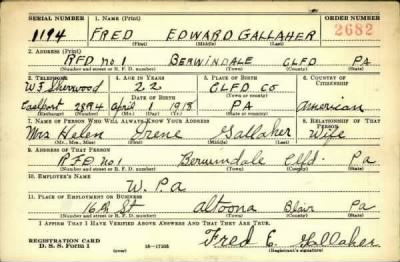 SERIAL NUMBER 1. NAME (Print) ORDER NUMBER
1194 FRED EDWARD GALLAHER 2682
(First) (Middle) (Last)
2. ADDRESS (Print)
RFD no 1 BERWINDALE CLFD PA
(Number and street or R. F. D. number) (Town) (County) (State)
3. TELEPHONE 4. AGE IN YEARS 5. PLACE OF BIRTH 6. COUNTRY OF CITIZENSHIP
W F Sherwood 22 CLFD CO
DATE OF BIRTH (Town or county)
Coalport 2894 April 1 1918 PA American
(Exchange) (Number) (Mo.) (Day) (Yr.) (State or country)
7. NAME OF PERSON WHO WILL ALWAYS KNOW YOUR ADDRESS 8. RELATIONSHIP OF THAT PERSON
Mrs Helen Irene Gallaher Wife
(Mr., Mrs., Miss) (First) (Middle) (Last)
9. ADDRESS OF THAT PERSON
RFD no 1 Berwindale Clfd. Pa
(Number and street or R. F. D. number) (Town) (County) (State)
10. EMPLOYER'S NAME
W. P. a
11. PLACE OF EMPLOYMENT OR BUSINESS
16th St Altoona Blair Pa
(Number and street or R. F. D. number) (Town) (County) (State)
I AFFIRM THAT I HAVE VERIFIED ABOVE ANSWERS AND THAT THEY ARE TRUE.
REGISTRATION CARD
D. S. S. Form 1 (over) 16—17105 Fred E. Gallaher
(Registrant's signature)